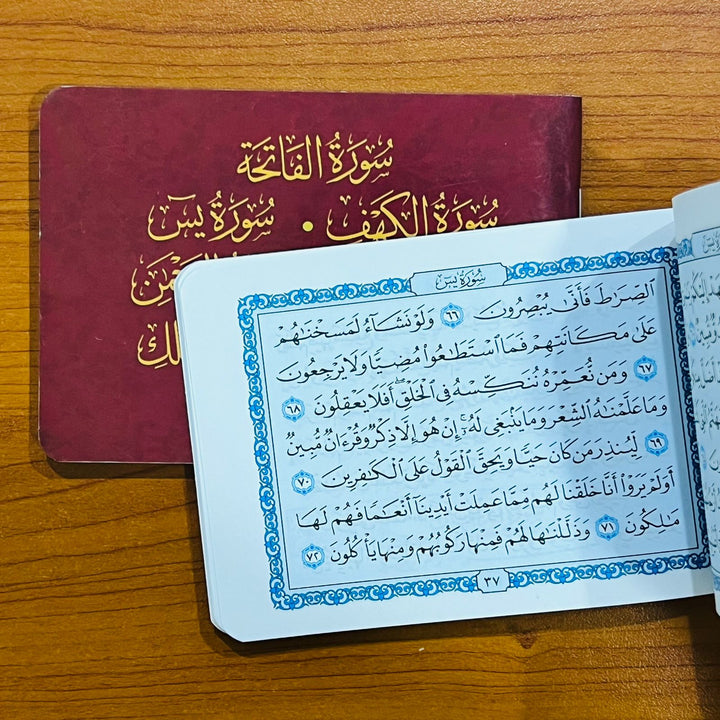 سُورَةُ الفَاتِحَة
سُورَةُ الكَهْفِ • سُورَةُ يسٓ
سُورَةُ يسٓ
ٱلصِّرَٰطَ فَأَنَّىٰ يُبْصِرُونَ ٦٦ وَلَوْ نَشَآءُ لَمَسَخْنَٰهُمْ
عَلَىٰ مَكَانَتِهِمْ فَمَا ٱسْتَطَٰعُوا۟ مُضِيًّا وَلَا يَرْجِعُونَ
٦٧ وَمَن نُّعَمِّرْهُ نُنَكِّسْهُ فِى ٱلْخَلْقِ ۖ أَفَلَا يَعْقِلُونَ ٦٨
وَمَا عَلَّمْنَٰهُ ٱلشِّعْرَ وَمَا يَنۢبَغِى لَهُۥٓ ۚ إِنْ هُوَ إِلَّا ذِكْرٌ وَقُرْءَانٌ مُّبِينٌ
٦٩ لِّيُنذِرَ مَن كَانَ حَيًّا وَيَحِقَّ ٱلْقَوْلُ عَلَى ٱلْكَٰفِرِينَ ٧٠
أَوَلَمْ يَرَوْا۟ أَنَّا خَلَقْنَا لَهُم مِّمَّا عَمِلَتْ أَيْدِينَآ أَنْعَٰمًا فَهُمْ لَهَا
مَٰلِكُونَ ٧١ وَذَلَّلْنَٰهَا لَهُمْ فَمِنْهَا رَكُوبُهُمْ وَمِنْهَا يَأْكُلُونَ ٧٢
٣٧